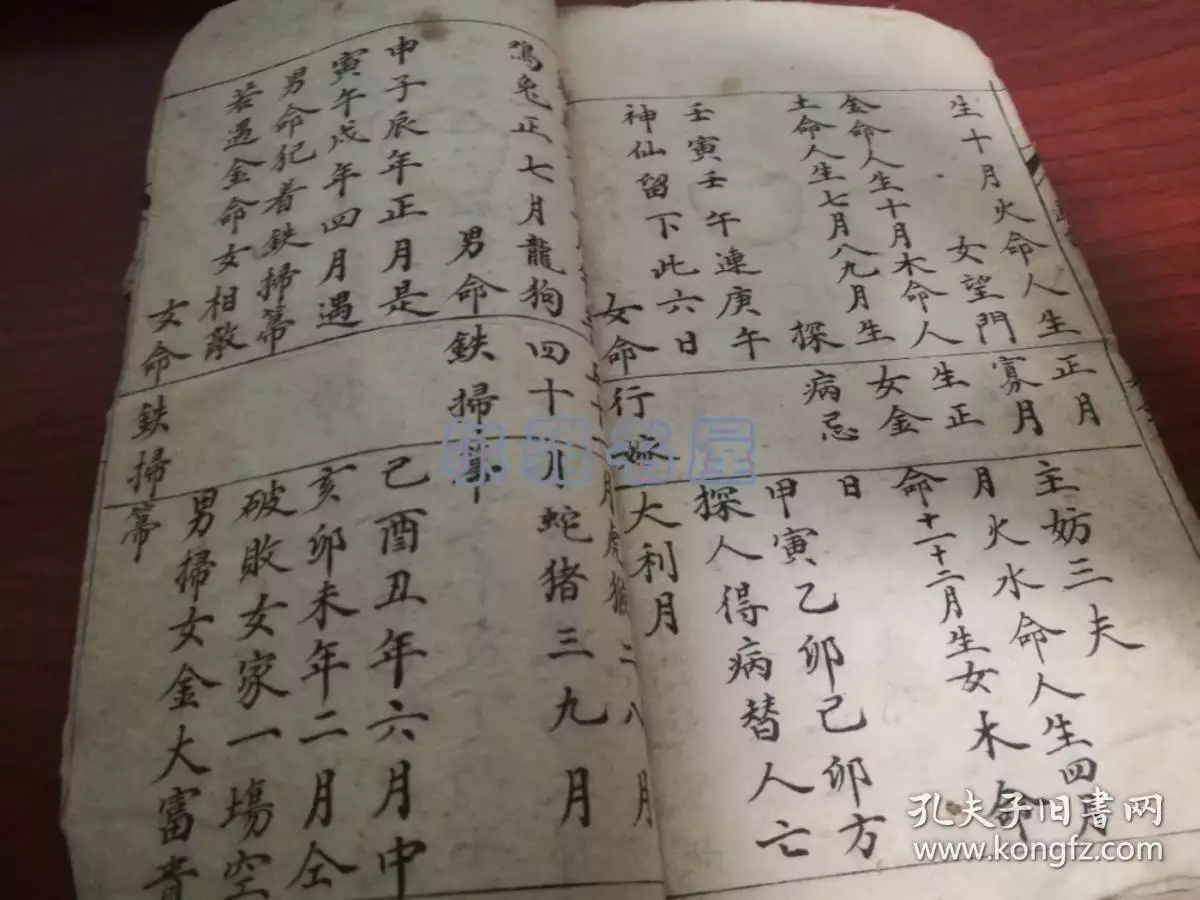 生十月火命人生正月月主妨三夫
女望門寡
金命人生十月木命人生正月火水命人生四月
土命人生七月八九月生女金命十一十二月生女木命
探病忌日
壬寅壬午連庚午甲寅乙卯己卯方
神仙留下此六日探人得病替人亡
女命行嫁大利月
月虎猴二八月
鴻兔正七月龍狗四十月蛇猪三九月
男命鉄掃箒
申子辰年正月是己酉丑年六月中
寅午戌年四月遇亥卯未年二月仝
男命犯着鉄掃箒破敗女家一塲空
若遇金命女相敵男掃女金大富貴
女命鉄掃箒
孔夫子旧書网
www.kongfz.com